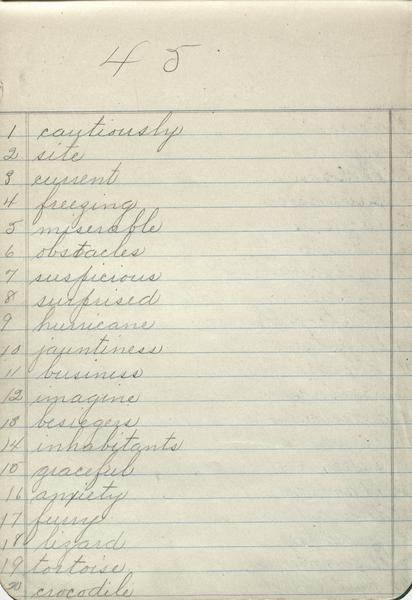 45
1 cautiously
2 site
3 current
4 freezing
5 miserable
6 obstacles
7 suspicious
8 surprised
9 hurricane
10 jauntiness
11 business
12 imagine
13 besiegers
14 inhabitants
15 graceful
16 anxiety
17 furry
18 lizard
19 tortoise
20 crocodile